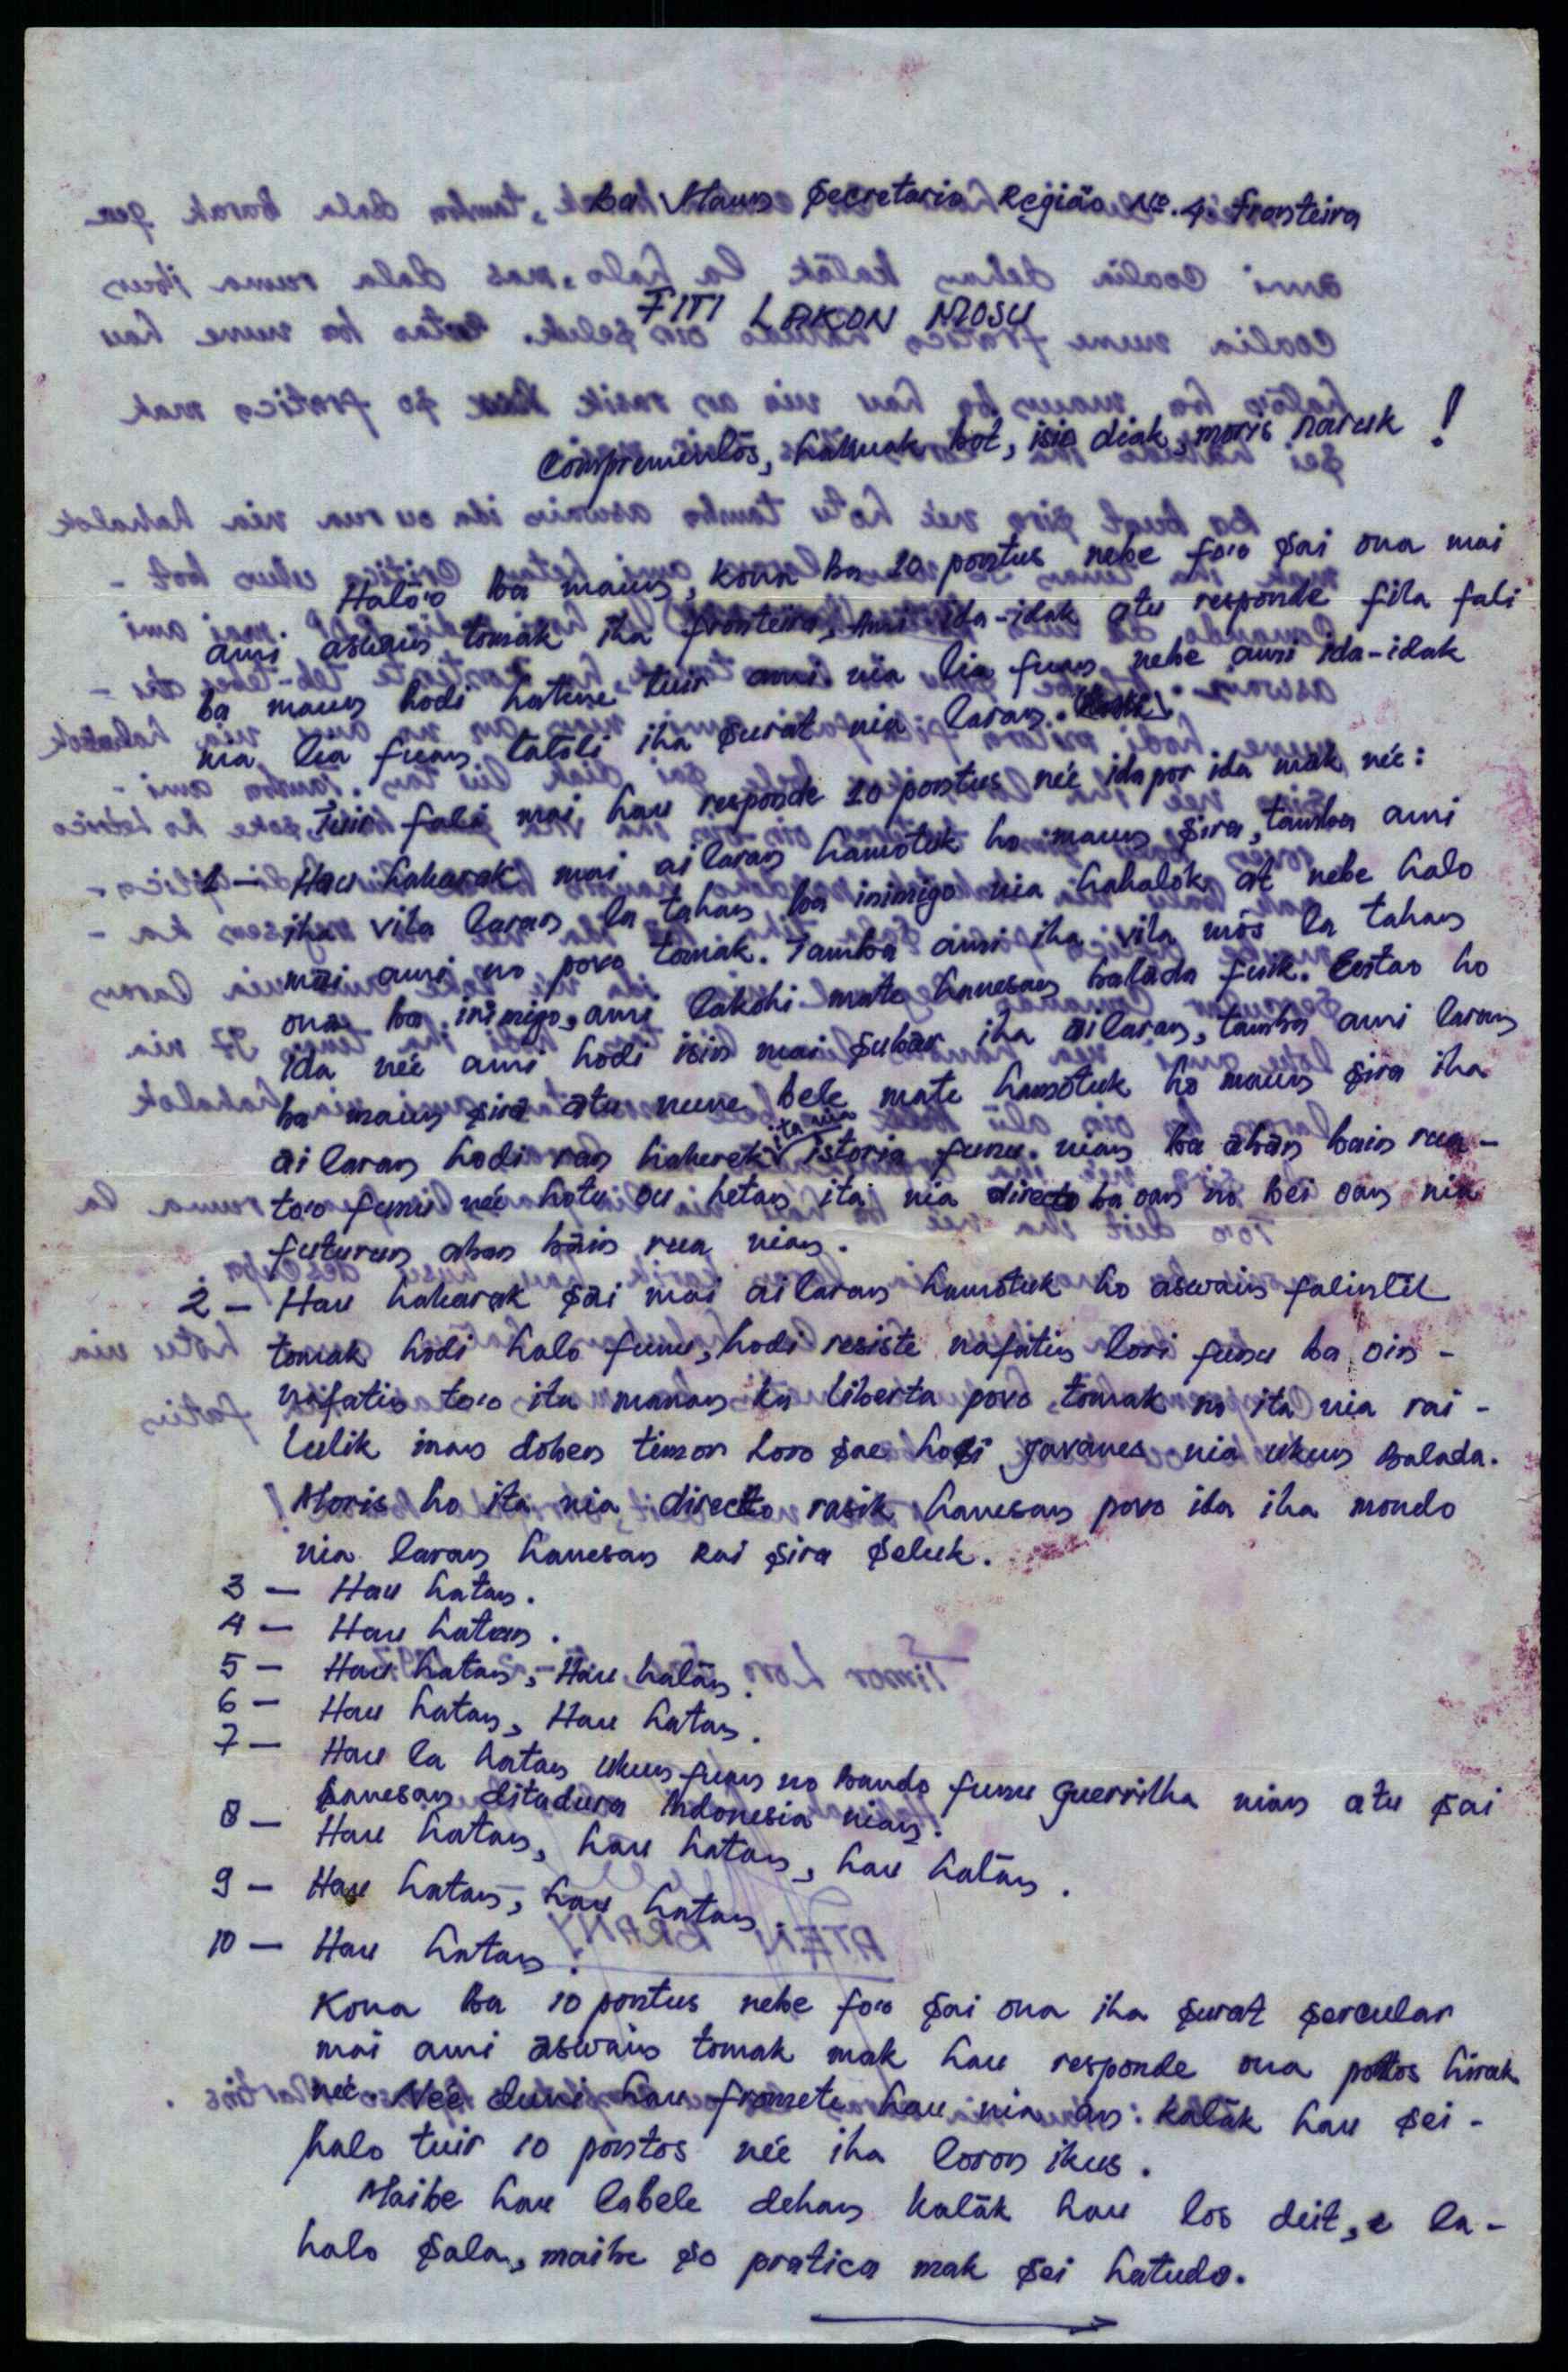 Ba Maun Secretario Região No. 4 fronteira
FITI LAKON MOSU
Comprementos, hakuak bot, isin diak, moris naruk !
Halo'o ba maun, kona ba 10 pontus nebe fo'o sai ona mai
ami aswain tomak iha fronteira, ami ida-idak atu responde fila fali
ba maun hodi hatene tuir ami nia lia fuan nebe ami ida-idak
nia lia fuan tatoli iha surat nia laran.
Tuir fali mai, hau responde 10 pontus neé ida por ida mak neé:
1 — Hau hakarak mai ailaran hamotuk ho maun sira, tamba ami
iha vila laran la tahan ba inimigo nia hahalok at nebe halo
mai ami no povo tomak. Tamba ami iha vila mós la tahan
ona ba inimigo, ami lakohi mate hanesan balada fuik. Entao ho
ida neé ami hodi isin mai subar iha ailaran, tamba ami laran
ba maun sira atu nune bele mate hamotuk ho maun sira iha
ailaran hodi ran hakerek ita nia istoria funu nian ba aban bain rua -
to'o funu neé hotu ou hetan ita nia directo ba oan no bei oan nia
futurun aban bain rua nian.
2 — Hau hakarak sai mai ailaran hamotuk ho aswain falintil
tomak hodi halo funu, hodi resiste nafatin lori funu ba oin -
nafatin to'o ita manan ka liberta povo tomak no ita nia rai -
lulik inan doben timor loro sae hosi javanes nia ukun balada.
Moris ho ita nia directo rasik hanesan povo ida iha mondo
nia laran hanesan Rai sira seluk.
3 — Hau hatan.
4 — Hau hatan.
5 — Hau hatan, Hau hatan.
6 — Hau hatan, Hau hatan.
7 — Hau la hatan ukun fuan no bando funu guerrilha nian atu sai
hanesan ditadura Indonesia nian.
8 — Hau hatan, hau hatan, hau hatan.
9 — Hau hatan, hau hatan.
10 — Hau hatan.
Kona ba 10 pontus nebe fo'o sai ona iha surat sercular
mai ami aswain tomak mak hau responde ona pontos hirak
neé. Neé duni hau promete hau nia an: katak hau sei -
halo tuir 10 pontos neé iha loron ikus.
Maibe hau labele dehan katak hau los deit, e la -
halo sala, maibe so pratica mak sei hatudo.